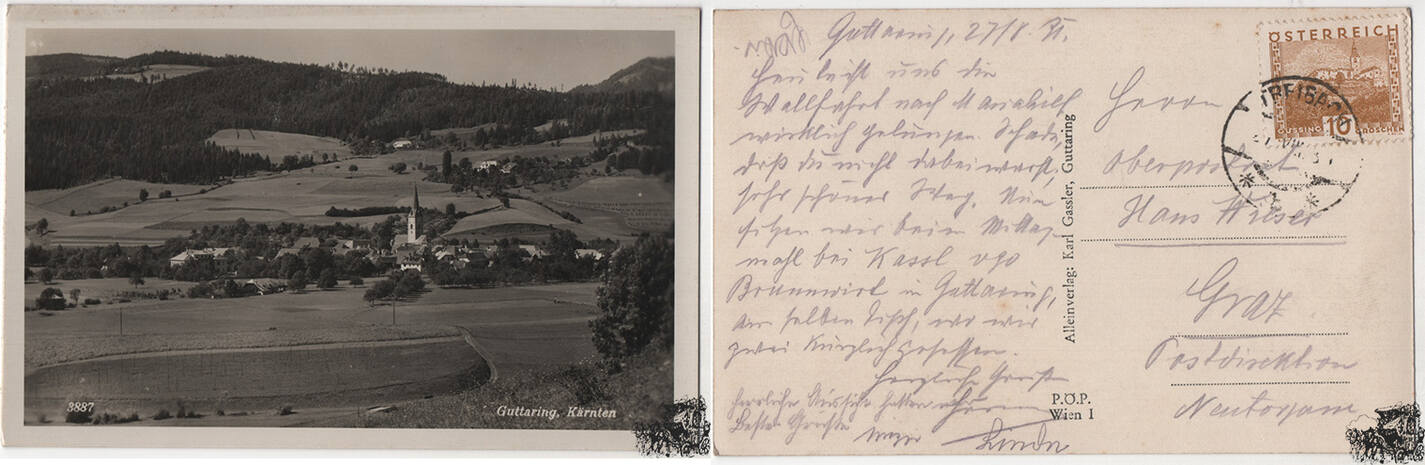 3887
Guttaring, Kärnten
Guttaring, 27/8. 31.
Heu leicht uns die
Wallfahrt nach Mariahilf
wirklich gelungen. Schade,
daß du nicht dabei warst,
sehr schöner Weg. Nun
sitzen wir beim Mittag
mahl bei Kassl vgo
Braunwirt in Guttaring,
am selben Tisch, wo wir
zwei kürzlich gesessen.
Herzliche Grüße
herrliche Aussicht hatten wir
Beste Grüße
Linde
Alleinverlag: Karl Gassler, Guttaring
P.Ö.P.
Wien I
ÖSTERREICH
GÜSSING 10 GROSCHEN
TREIBACH
Herrn
Oberpostrat
Hans Wieser
Graz
Postdirektion
Neutorgasse